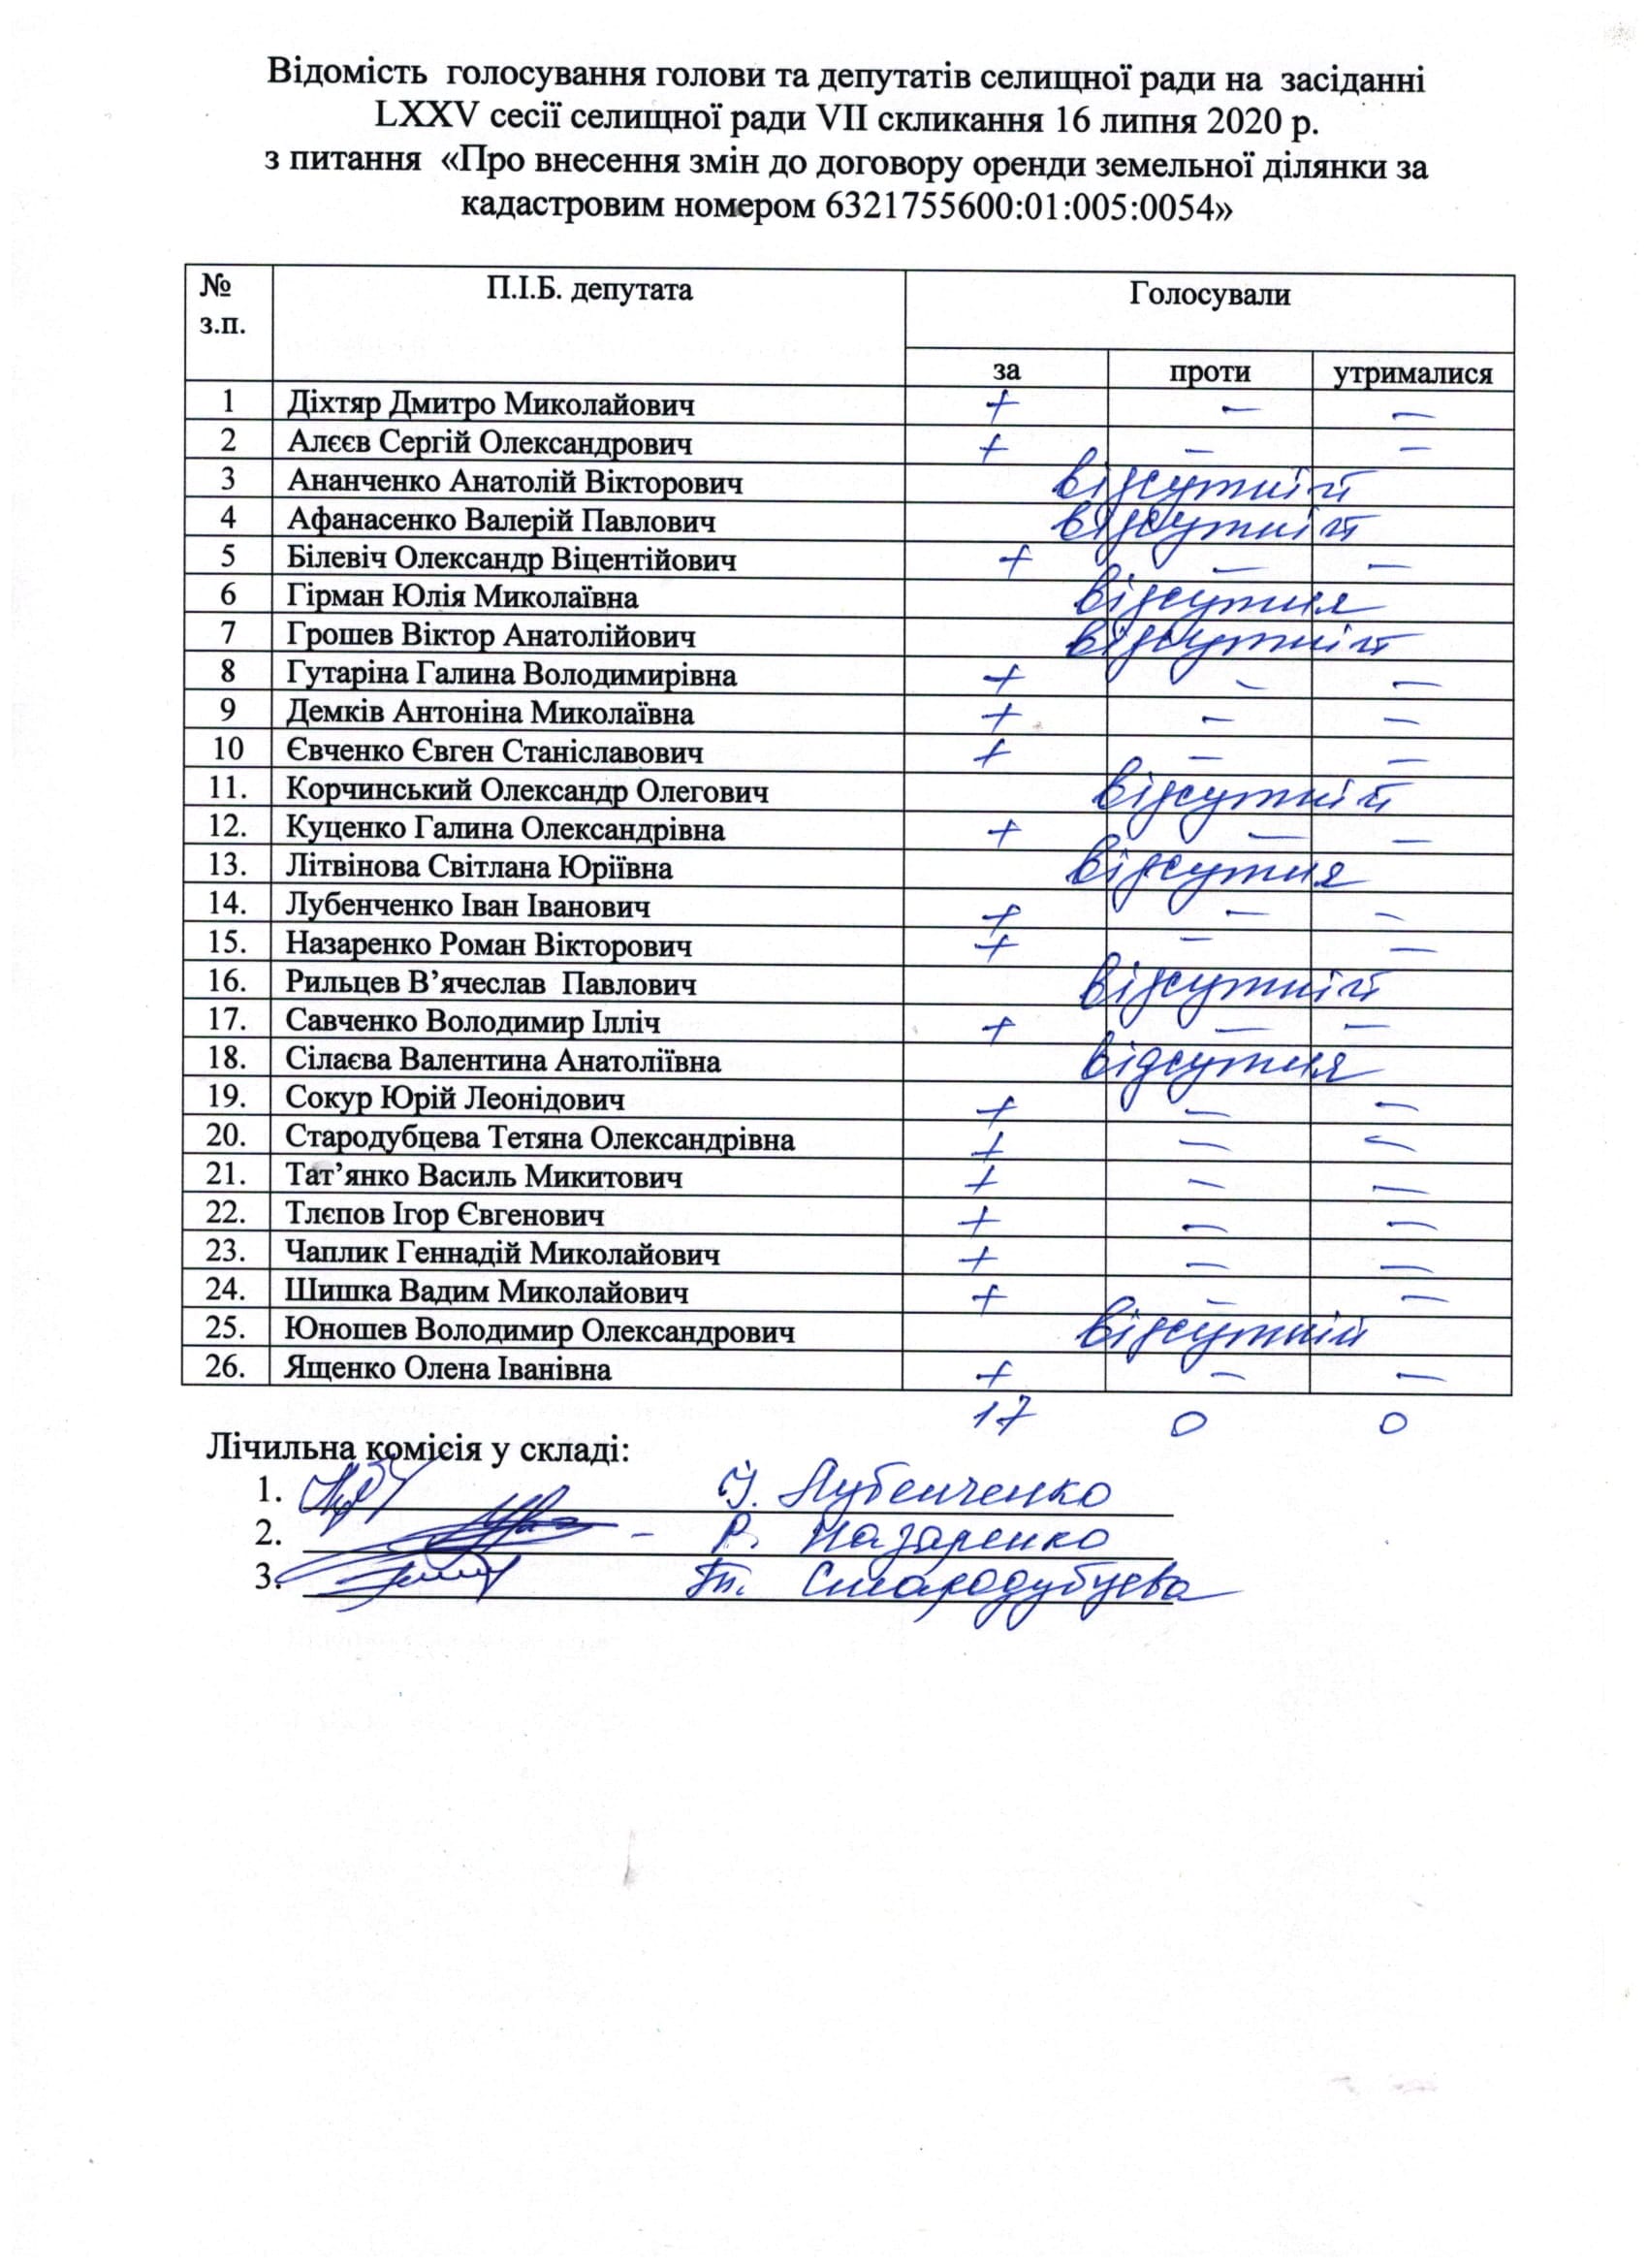 Відомість голосування голови та депутатів селищної ради на засіданні
LXXV сесії селищної ради VII скликання 16 липня 2020 р.
з питання «Про внесення змін до договору оренди земельної ділянки за
кадастровим номером 6321755600:01:005:0054»
№ з.п. П.І.Б. депутата Голосували
за проти утрималися
1 Діхтяр Дмитро Миколайович + — —
2 Алєєв Сергій Олександрович + — —
3 Ананченко Анатолій Вікторович відсутній
4 Афанасенко Валерій Павлович відсутній
5 Білевіч Олександр Віцентійович + — —
6 Гірман Юлія Миколаївна відсутня
7 Грошев Віктор Анатолійович відсутній
8 Гутаріна Галина Володимирівна + — —
9 Демків Антоніна Миколаївна + — —
10 Євченко Євген Станіславович + — —
11. Корчинський Олександр Олегович відсутній
12. Куценко Галина Олександрівна + — —
13. Літвінова Світлана Юріївна відсутня
14. Лубенченко Іван Іванович + — —
15. Назаренко Роман Вікторович + — —
16. Рильцев В’ячеслав Павлович відсутній
17. Савченко Володимир Ілліч + — —
18. Сілаєва Валентина Анатоліївна відсутня
19. Сокур Юрій Леонідович + — —
20. Стародубцева Тетяна Олександрівна + — —
21. Тат’янко Василь Микитович + — —
22. Тлєпов Ігор Євгенович + — —
23. Чаплик Геннадій Миколайович + — —
24. Шишка Вадим Миколайович + — —
25. Юношев Володимир Олександрович відсутній
26. Ященко Олена Іванівна + — —
17 0 0
Лічильна комісія у складі:
1. І. Лубенченко
2. – Р. Назаренко
3. Т. Стародубцева